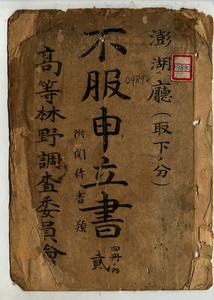 澎湖廳(取下ノ分)
不服申立書
附関係書類
貳
四冊ノ内
高等林野調査委員會